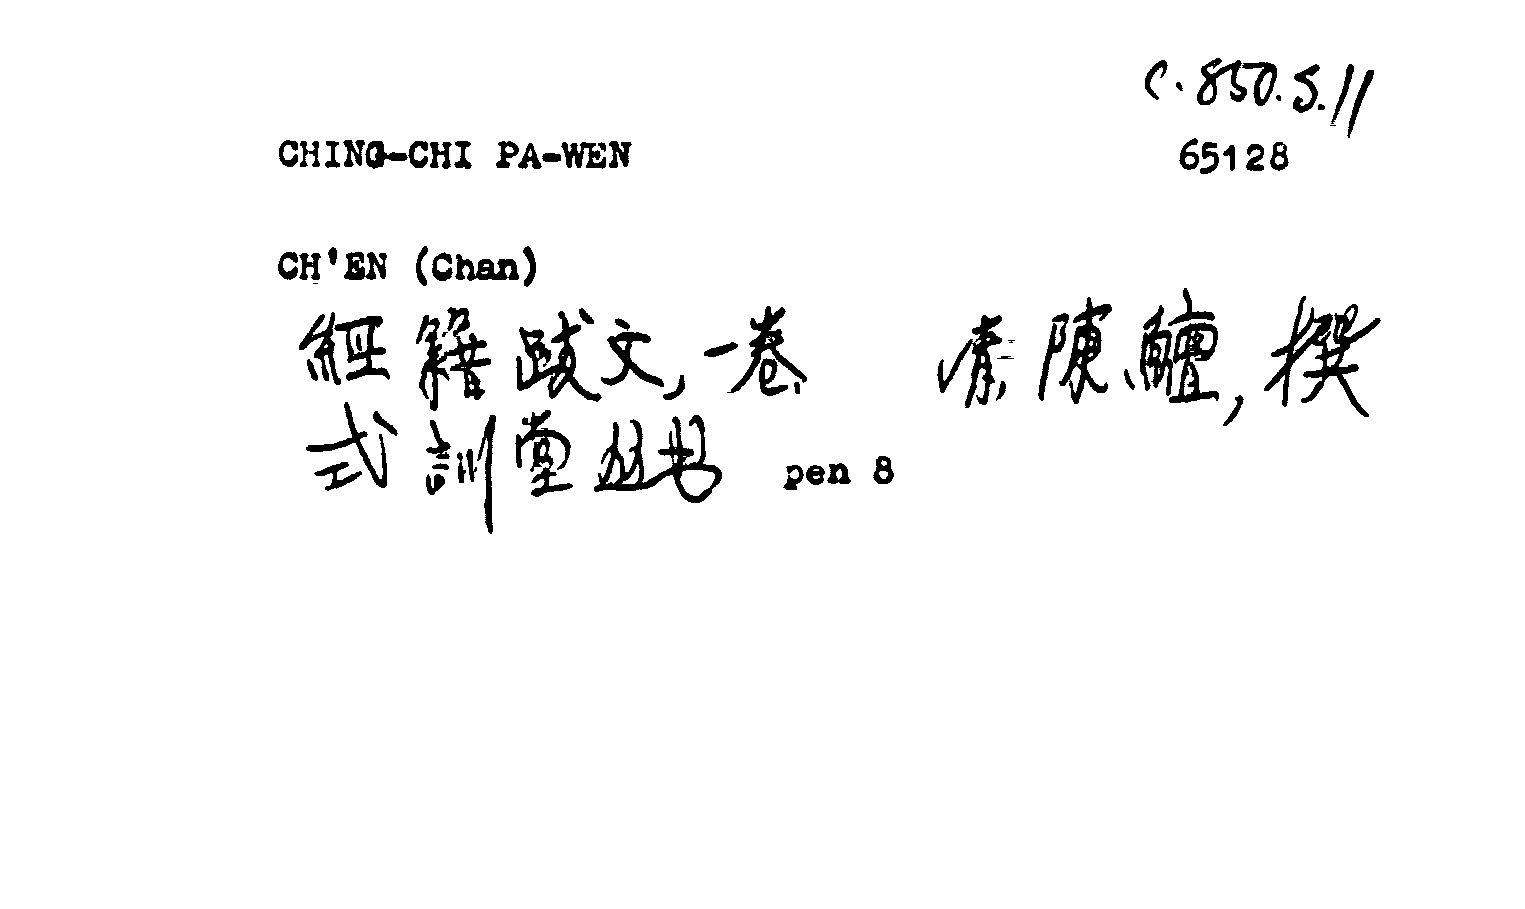 C.850.S.11
CHING-CHI PA-WEN 65128
CH'EN (Chan)
經籍跋文, 一卷 清 陳鱣, 撰
式訓堂叢书 pen 8